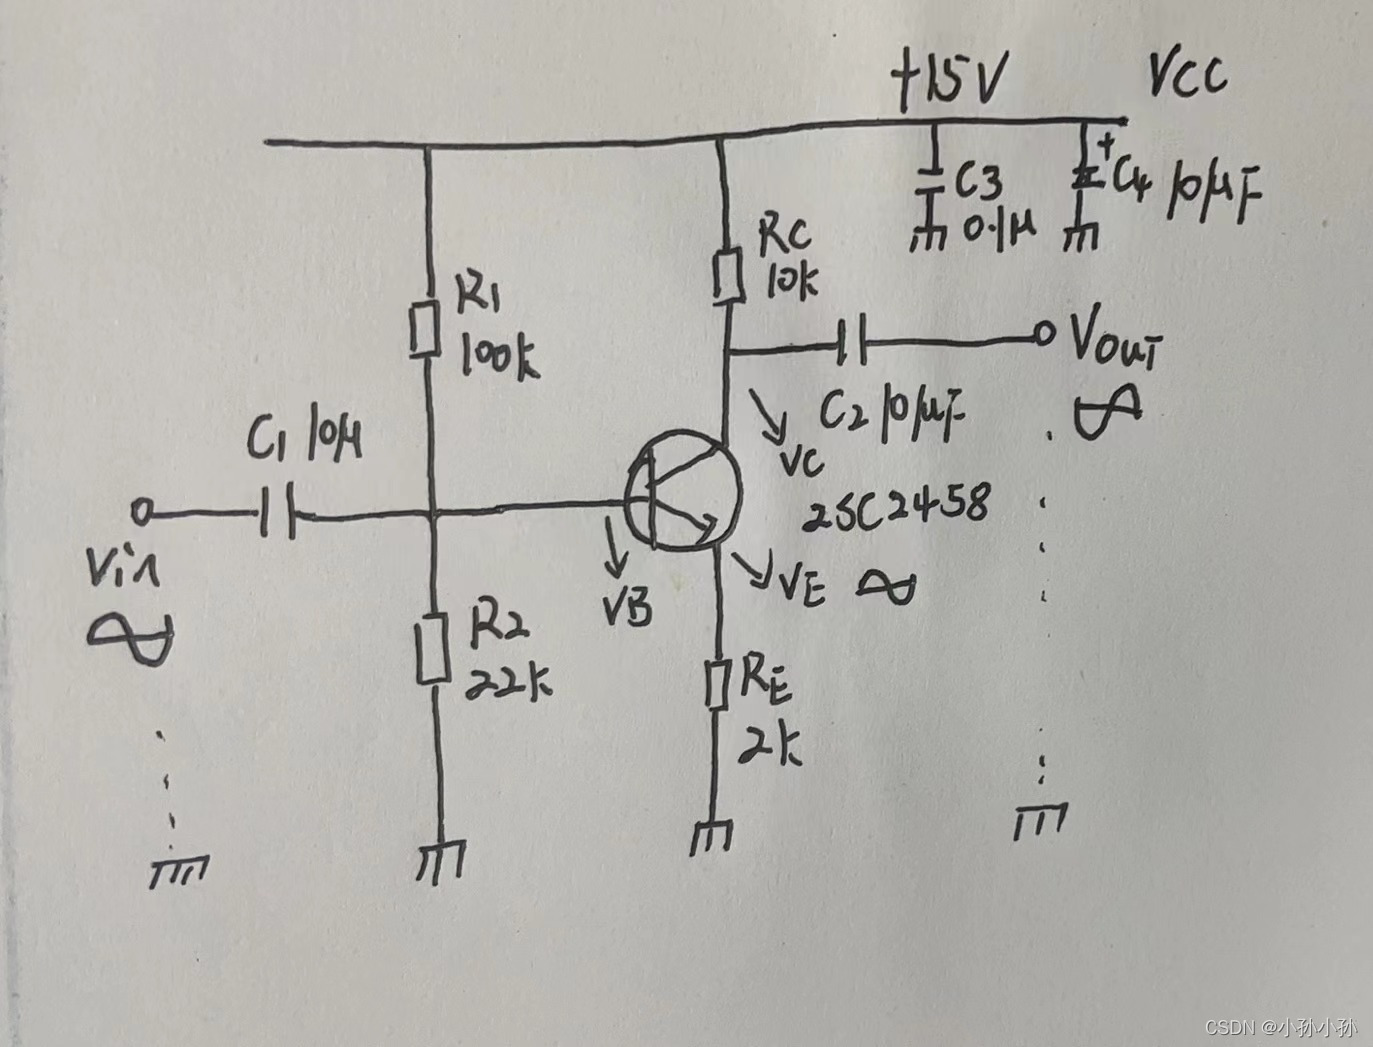 +15V VCC
C3
0.1μ
C4 10μF
RC
10k
R1
100k
VOUT
C2 10μF
C1 10μ
VC
2SC2458
Vin
VB
VE
R2
22k
RE
2k
CSDN @小孙小孙